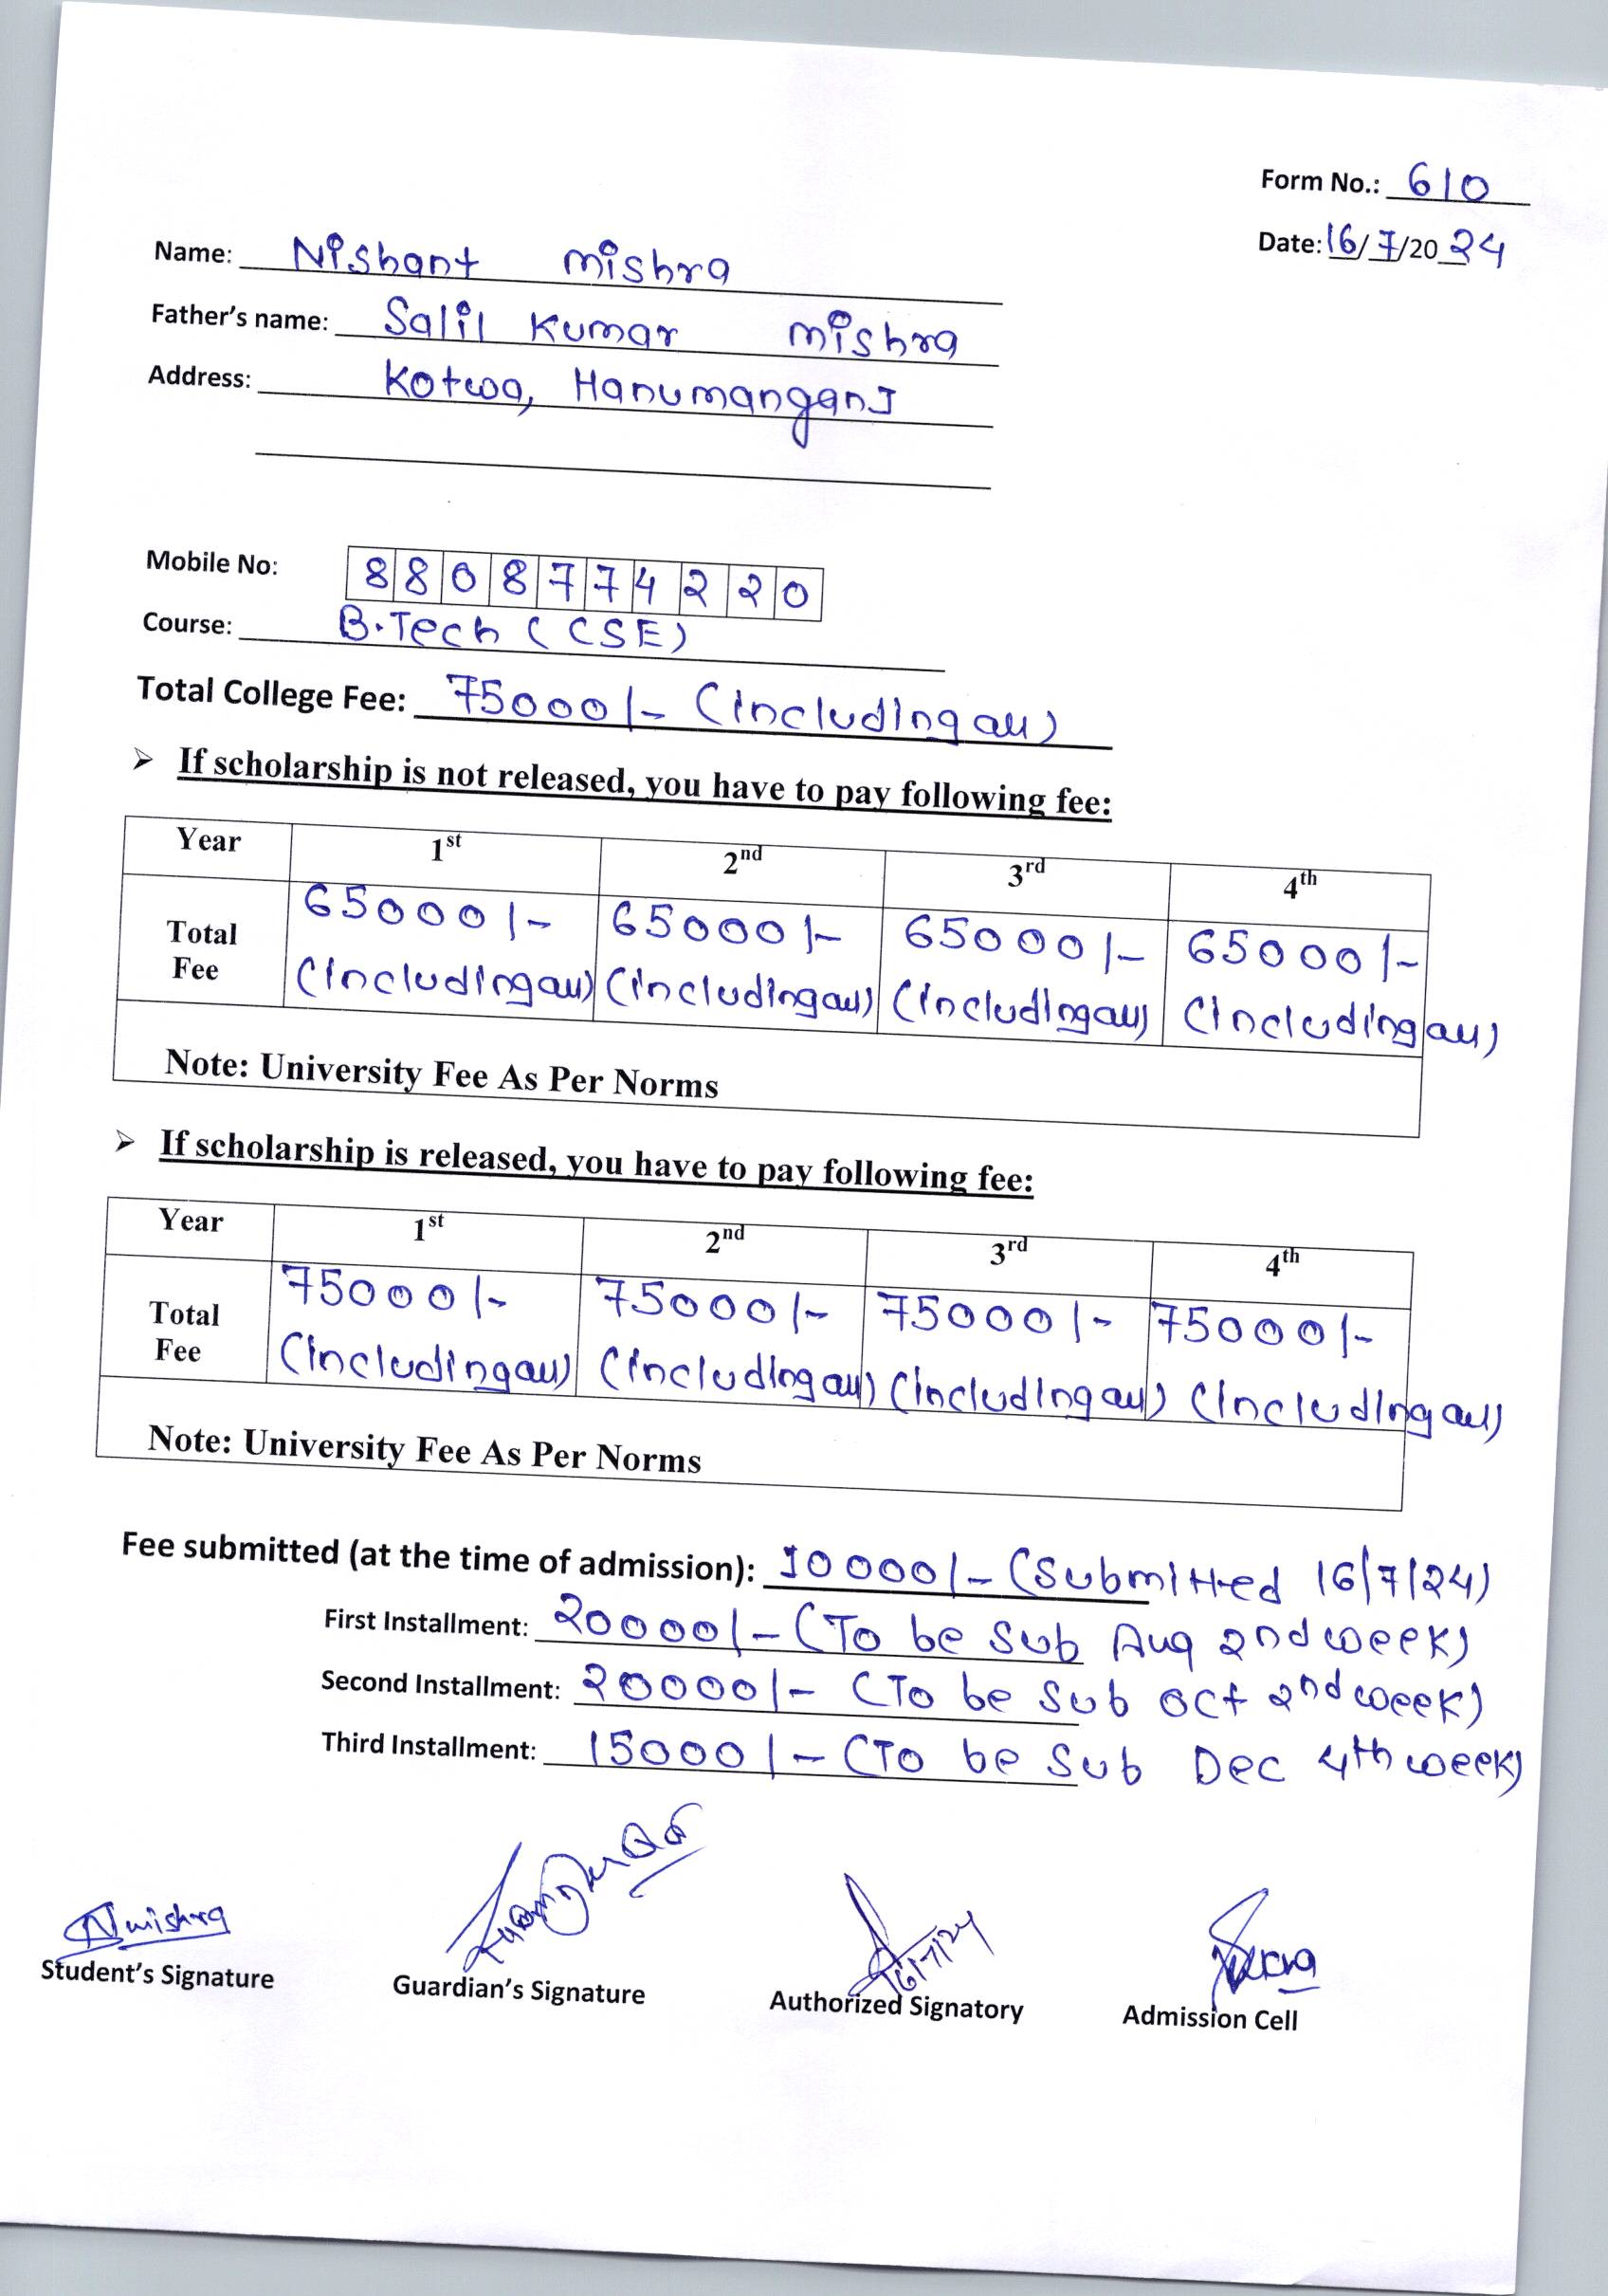 Form No.: 610
Date: 16/7/2024
Name: Nishant mishra
Father's name: Salil Kumar mishra
Address: Kotwa, Hanumanganj
Mobile No: 8808774220
Course: B.Tech (CSE)
Total College Fee: 75000/- (including all)
➢ If scholarship is not released, you have to pay following fee:
Year 1st 2nd 3rd 4th
Total Fee 65000/- (including all) 65000/- (including all) 65000/- (including all) 65000/- (including all)
Note: University Fee As Per Norms
➢ If scholarship is released, you have to pay following fee:
Year 1st 2nd 3rd 4th
Total Fee 75000/- (including all) 75000/- (including all) 75000/- (including all) 75000/- (including all)
Note: University Fee As Per Norms
Fee submitted (at the time of admission): 10000/- (Submitted 16/7/24)
First Installment: 20000/- (To be Sub Aug 2nd week)
Second Installment: 20000/- (To be Sub Oct 2nd week)
Third Installment: 15000/- (To be Sub Dec 4th week)
Nmishra 16/7/24
Student's Signature Guardian's Signature Authorized Signatory Admission Cell